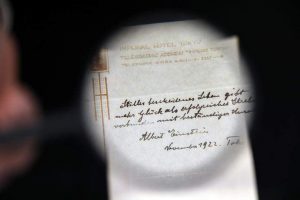 IMPERIAL HOTEL, TOKYO
Stilles bescheidenes Leben gibt
mehr Glück als erfolgreiches Streben
verbunden mit beständiger Unruhe
Albert Einstein
November 1922. Tokio